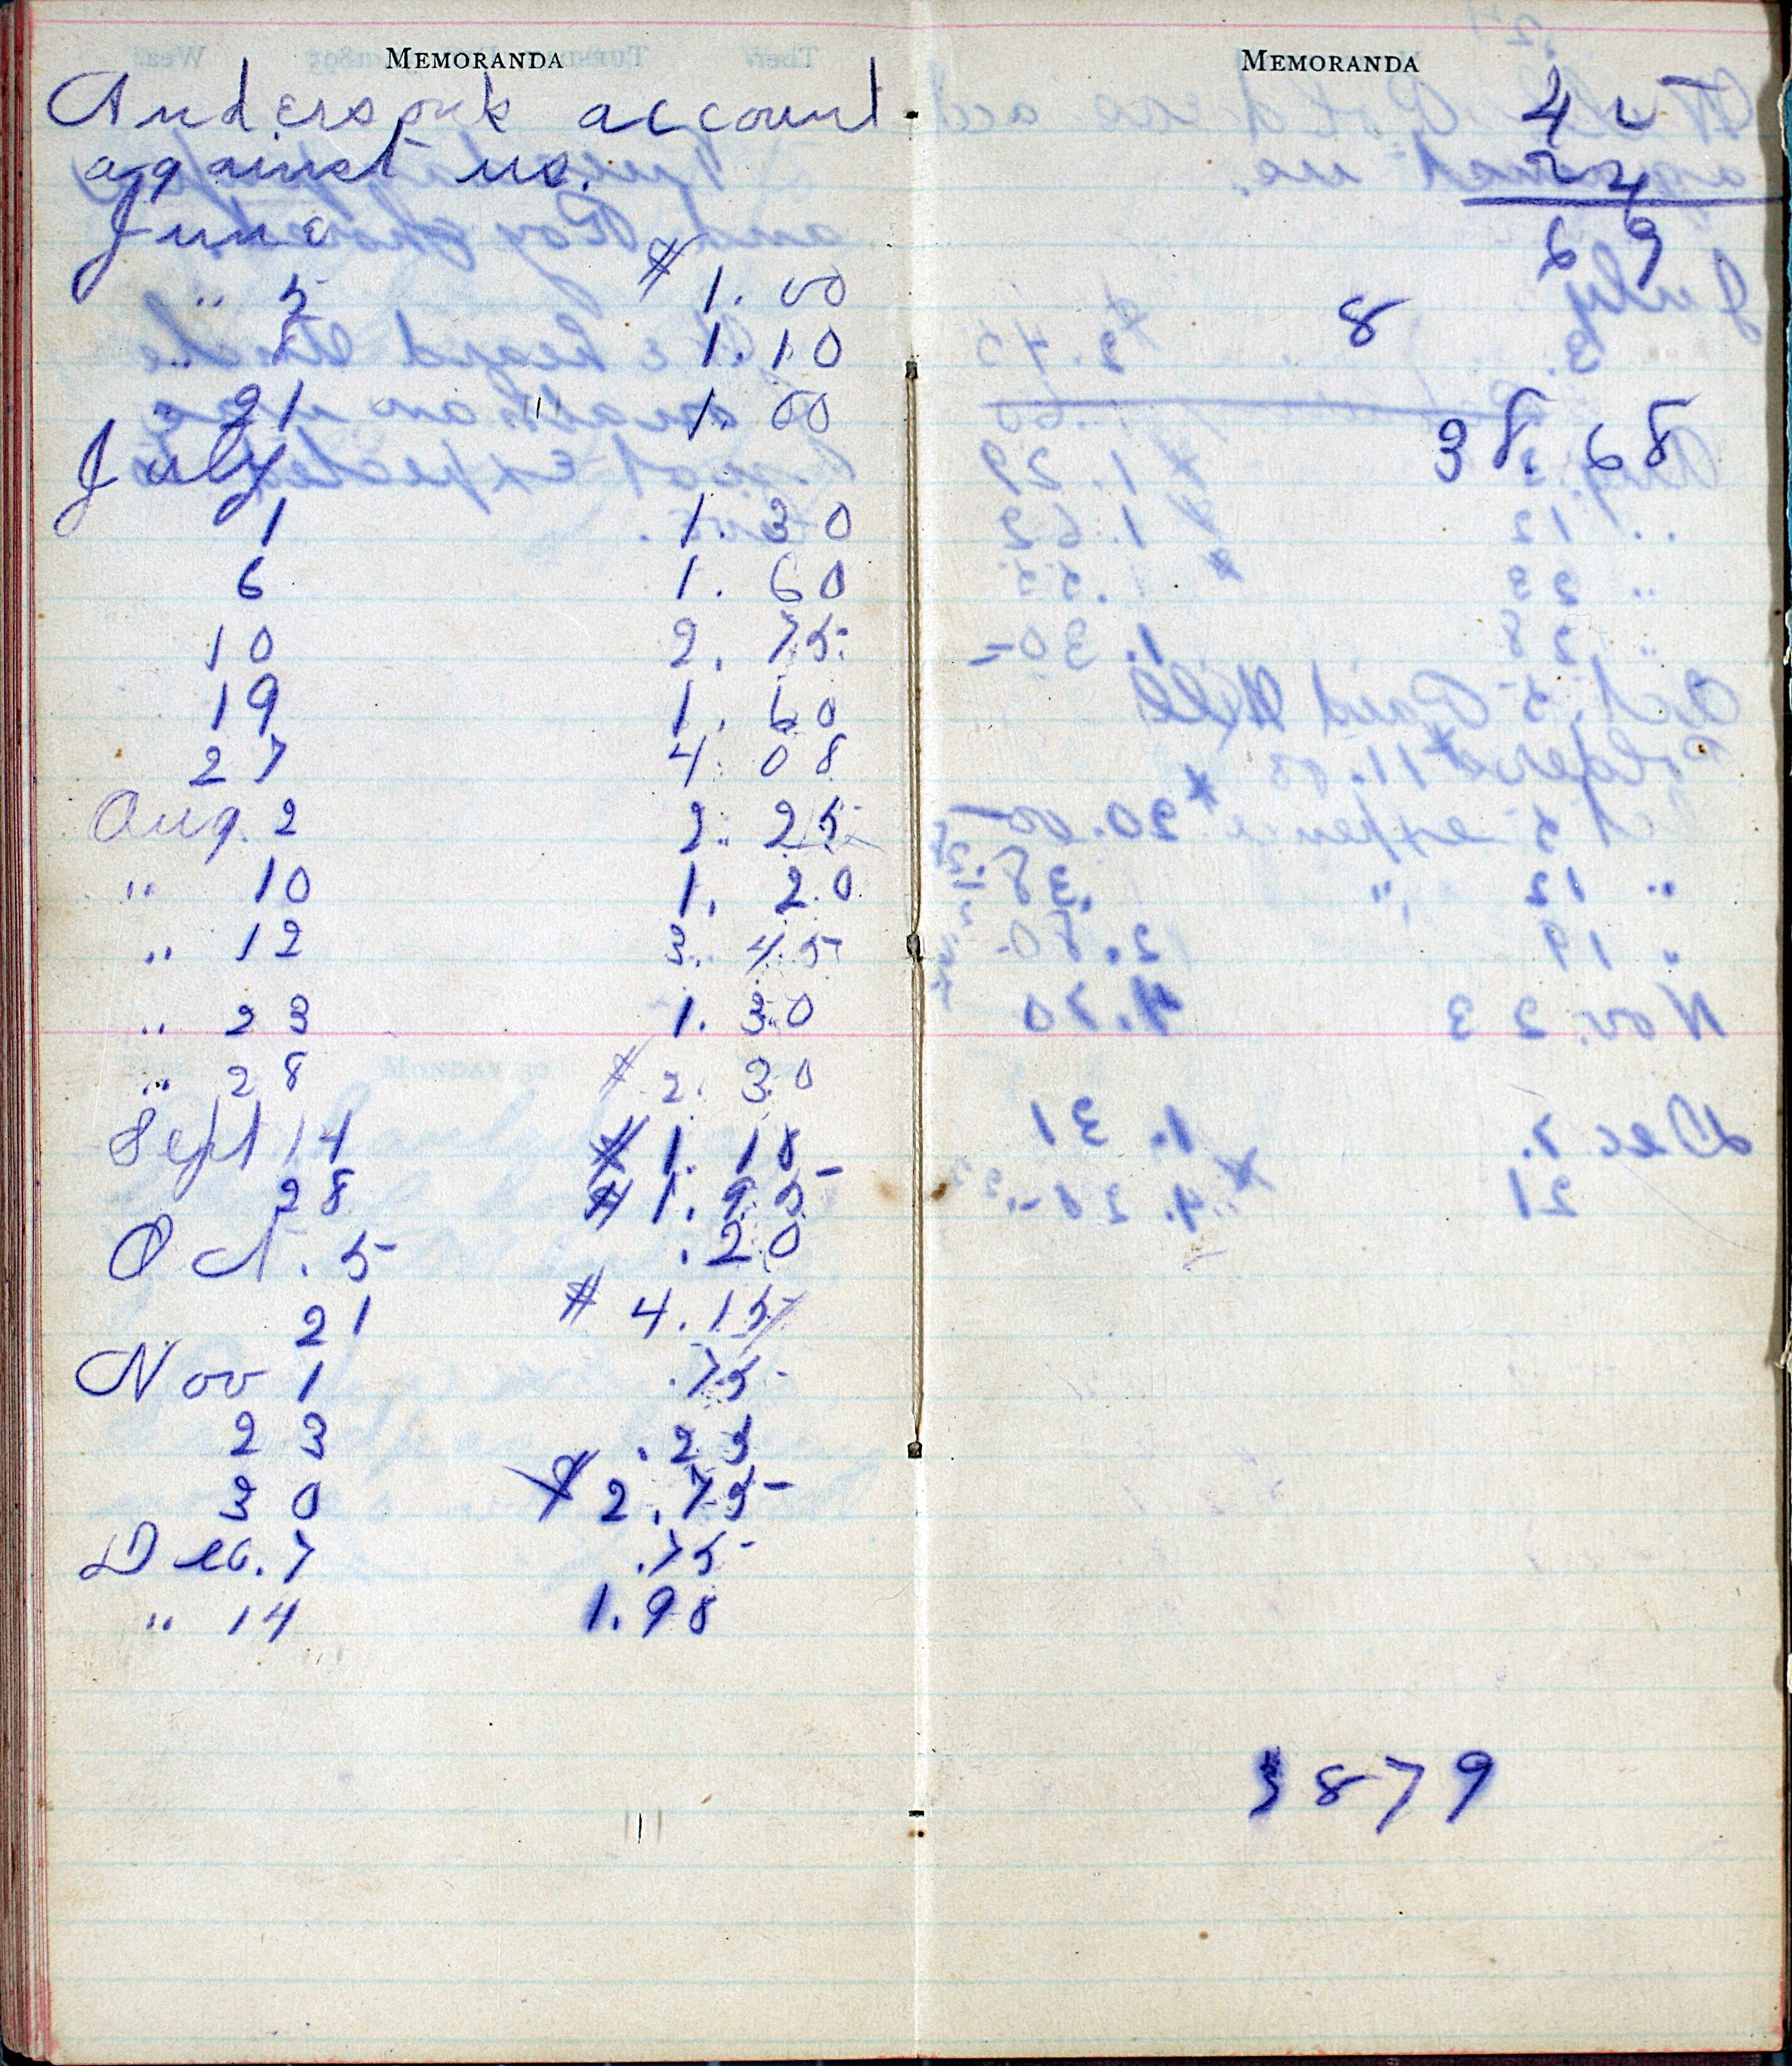 MEMORANDA
Anderson's account
against us.
June
" 5 $1.00
" 8 1.10
21 1.00
July
1 1.30
6 1.60
10 2.75
19 1.60
27 4.08
Aug. 2 2.25
" 10 1.20
" 12 3.45
" 23 1.30
" 28 $2.30
Sept 14 $1.18
28 $1.95
Oct. 5 .20
21 $4.15
Nov 1 .75
23 .25
30 $2.75
Dec. 7 .75
" 14 1.98
MEMORANDA
45
24
69
8
38.68
3879